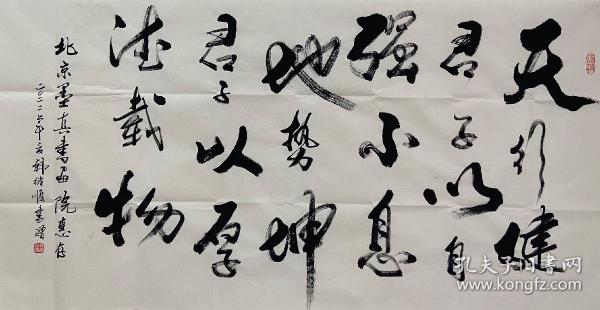 天行健
君子以自
强不息
地势坤
君子以厚
德载物
北京墨真书画院惠存
孔夫子旧书网
www.kongfz.com